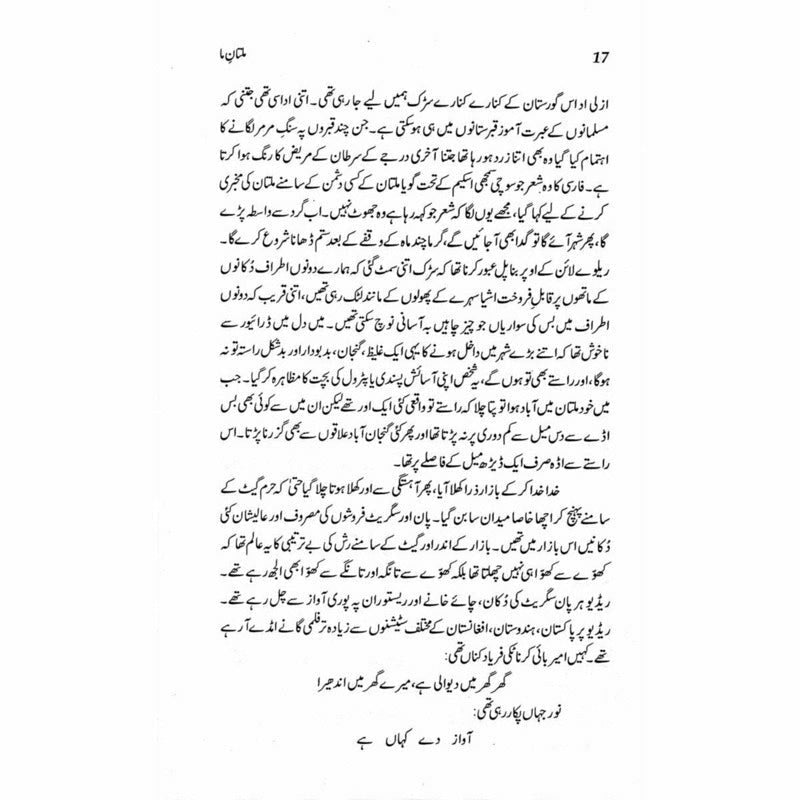 17
ملتانِ ما
ازلی اداس گورستان کے کنارے کنارے سڑک ہمیں لیے جا رہی تھی۔ اتنی اداسی تھی جتنی کہ
مسلمانوں کے عبرت آموز قبرستانوں میں ہی ہوسکتی ہے۔ جن چند قبروں پہ سنگِ مرمر لگانے کا
اہتمام کیا گیا وہ بھی اتنا زرد ہورہا تھا جتنا آخری درجے کے سرطان کے مریض کا رنگ ہوا کرتا
ہے۔ فارسی کا وہ شعر جو سوچی سمجھی اسکیم کے تحت گویا ملتان کے کسی دشمن کے سامنے ملتان کی مخبری
کرنے کے لیے کہا گیا، مجھے یوں لگا کہ شعر جو کہہ رہا ہے وہ جھوٹ نہیں۔ اب گرد سے واسطہ پڑے
گا، پھر شہر آئے گا تو گدا بھی آ جائیں گے، گرما چند ماہ کے وقفے کے بعد ستم ڈھانا شروع کرے گا۔
ریلوے لائن کے اوپر بنا پل عبور کرنا تھا کہ سڑک اتنی سمٹ گئی کہ ہمارے دونوں اطراف دُکانوں
کے ماتھوں پر قابلِ فروخت اشیا سہرے کے پھولوں کے مانند لٹک رہی تھیں، اتنی قریب کہ دونوں
اطراف میں بس کی سواریاں جو چیز چاہیں بہ آسانی نوچ سکتی تھیں۔ میں دل میں ڈرائیور سے
ناخوش تھا کہ اتنے بڑے شہر میں داخل ہونے کا یہی ایک غلیظ، گنجان، بدبودار اور بدشکل راستہ تو نہ
ہوگا، اور راستے بھی تو ہوں گے، یہ شخص اپنی آسائش پسندی یا پٹرول کی بچت کا مظاہرہ کر گیا۔ جب
میں خود ملتان میں آباد ہوا تو پتا چلا کہ راستے تو واقعی کئی ایک اور تھے لیکن ان میں سے کوئی بھی بس
اڈے سے دس میل سے کم دوری پر نہ پڑتا تھا اور پھر کئی گنجان آباد علاقوں سے بھی گزرنا پڑتا۔ اس
راستے سے اڈہ صرف ایک ڈیڑھ میل کے فاصلے پر تھا۔
خدا خدا کر کے بازار ذرا کھلا آیا، پھر آہستگی سے اور کھلا ہوتا چلا گیا حتیٰ کہ حرم گیٹ کے
سامنے پہنچ کر اچھا خاصا میدان سا بن گیا۔ پان اور سگریٹ فروشوں کی مصروف اور عالیشان کئی
دُکانیں اس بازار میں تھیں۔ بازار کے اندر اور گیٹ کے سامنے رش کی بے ترتیبی کا یہ عالم تھا کہ
کھوّے سے کھوّا ہی نہیں چھلتا تھا بلکہ کھوّے سے تانگہ اور تانگے سے کھوّا بھی الجھ رہے تھے۔
ریڈیو ہر پان سگریٹ کی دُکان، چائے خانے اور ریستوران پہ پوری آواز سے چل رہے تھے۔
ریڈیو پر پاکستان، ہندوستان، افغانستان کے مختلف سٹیشنوں سے زیادہ تر فلمی گانے انڈے آ رہے
تھے۔ کہیں امیر بائی کرناٹکی فریاد کناں تھی:
گھر گھر میں دیوالی ہے، میرے گھر میں اندھیرا
نور جہاں پکار رہی تھی:
آواز دے کہاں ہے